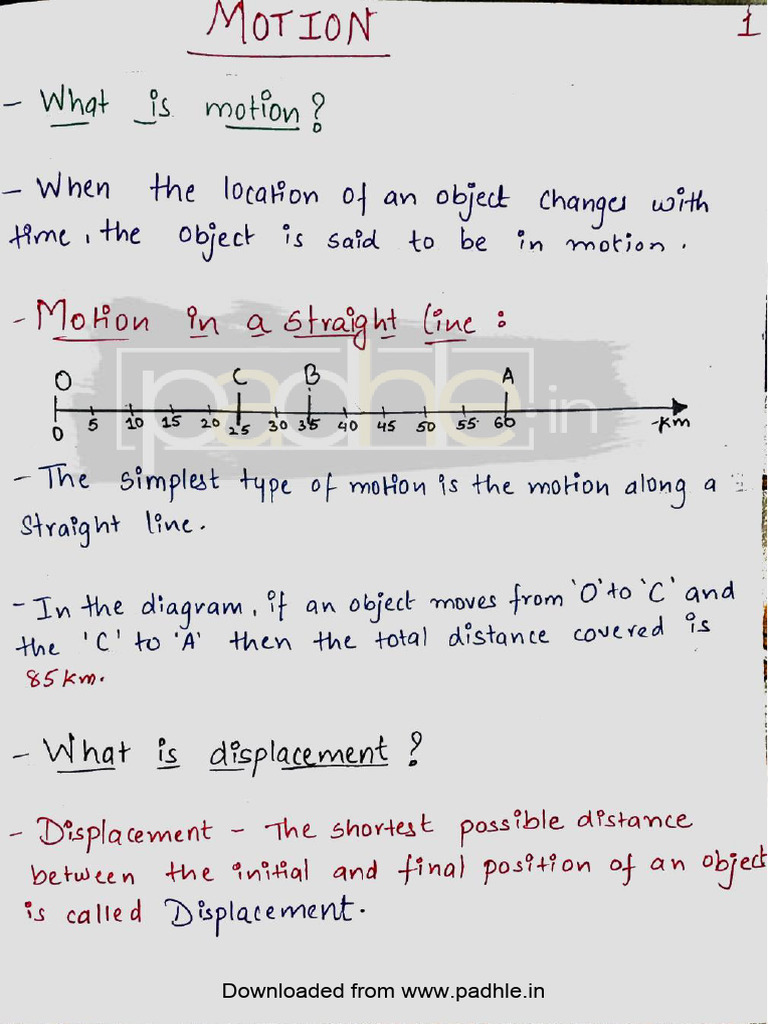 MOTION 1
- What is motion?
- When the location of an object changes with
time, the object is said to be in motion.
- Motion in a straight line :
O C B A
0 5 10 15 20 25 30 35 40 45 50 55 60 -Km
padhle.in
- The simplest type of motion is the motion along a
straight line.
- In the diagram, if an object moves from 'O' to 'C' and
the 'C' to 'A' then the total distance covered is
85km.
- What is displacement?
- Displacement - The shortest possible distance
between the initial and final position of an object
is called Displacement.
Downloaded from www.padhle.in